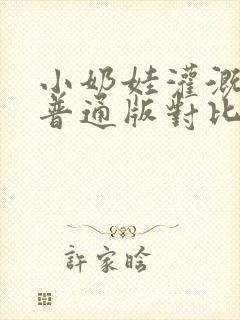 小奶娃灌溉
普通版對比
許家晗